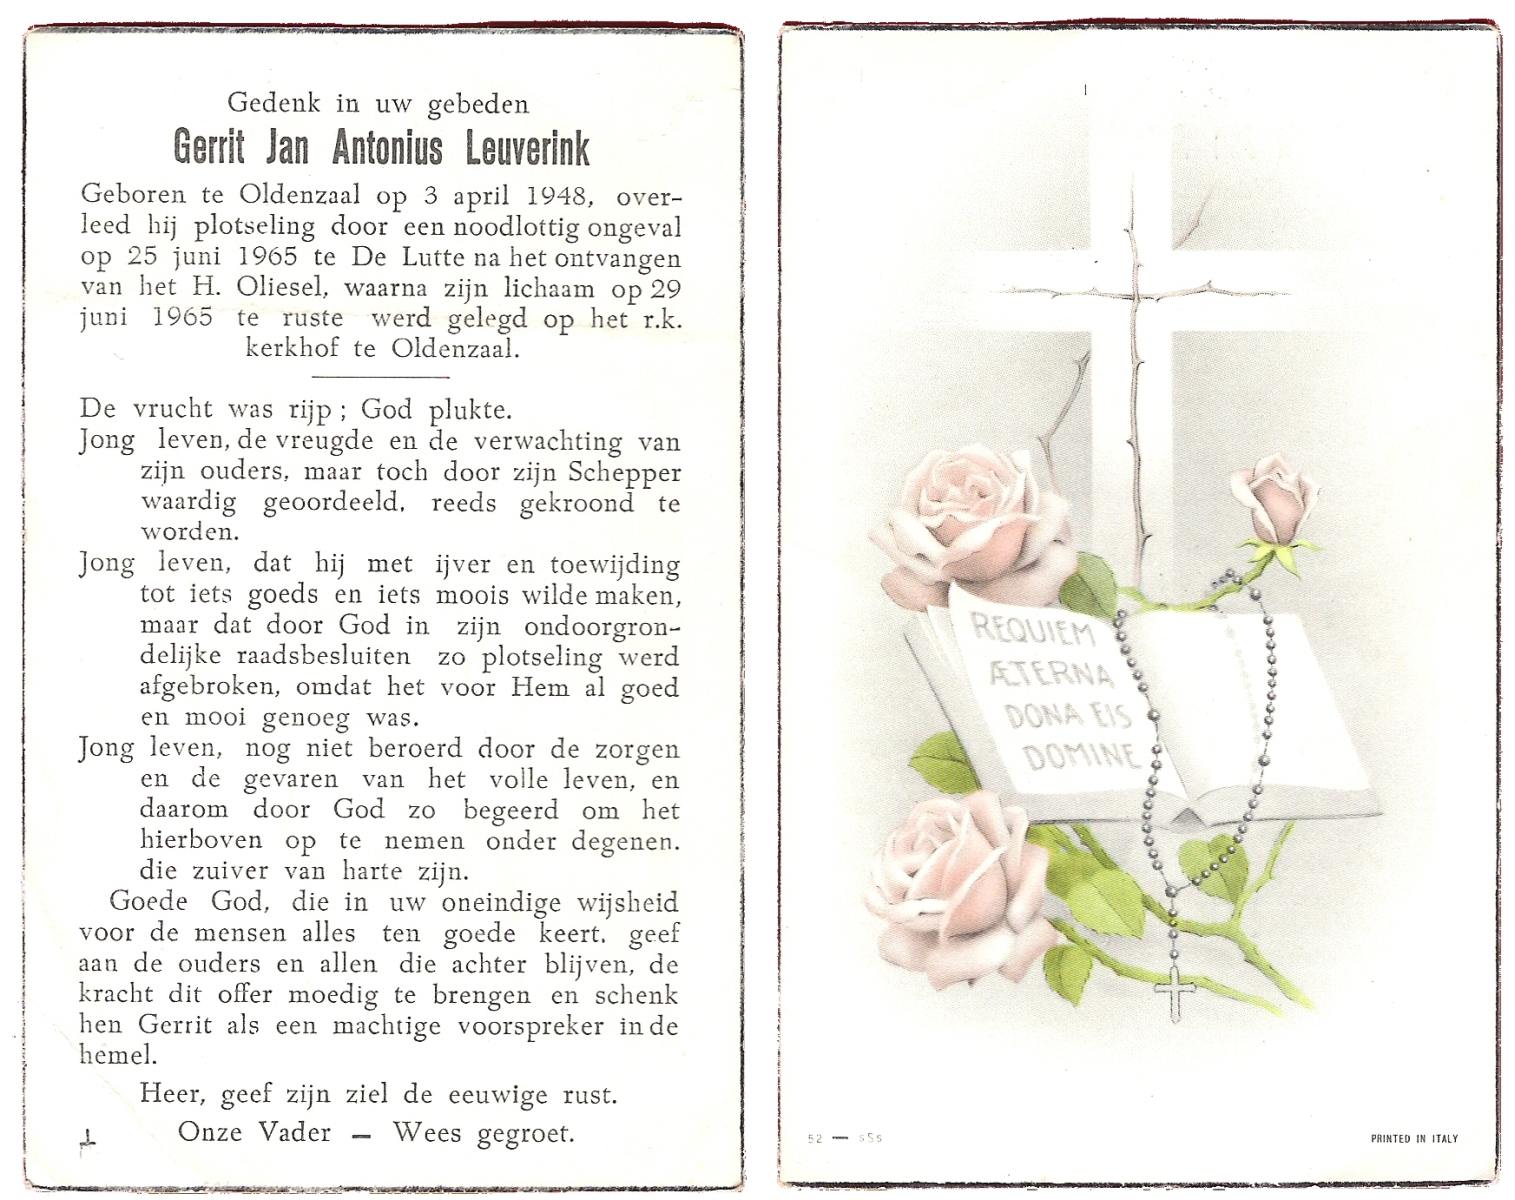 Gedenk in uw gebeden
Gerrit Jan Antonius Leuverink
Geboren te Oldenzaal op 3 april 1948, over-
leed hij plotseling door een noodlottig ongeval
op 25 juni 1965 te De Lutte na het ontvangen
van het H. Oliesel, waarna zijn lichaam op 29
juni 1965 te ruste werd gelegd op het r.k.
kerkhof te Oldenzaal.
De vrucht was rijp ; God plukte.
Jong leven, de vreugde en de verwachting van
zijn ouders, maar toch door zijn Schepper
waardig geoordeeld, reeds gekroond te
worden.
Jong leven, dat hij met ijver en toewijding
tot iets goeds en iets moois wilde maken,
maar dat door God in zijn ondoorgron-
delijke raadsbesluiten zo plotseling werd
afgebroken, omdat het voor Hem al goed
en mooi genoeg was.
Jong leven, nog niet beroerd door de zorgen
en de gevaren van het volle leven, en
daarom door God zo begeerd om het
hierboven op te nemen onder degenen.
die zuiver van harte zijn.
Goede God, die in uw oneindige wijsheid
voor de mensen alles ten goede keert. geef
aan de ouders en allen die achter blijven, de
kracht dit offer moedig te brengen en schenk
hen Gerrit als een machtige voorspreker in de
hemel.
Heer, geef zijn ziel de eeuwige rust.
Onze Vader — Wees gegroet.
REQUIEM
ÆTERNA
DONA EIS
DOMINE
52 — sSs
PRINTED IN ITALY